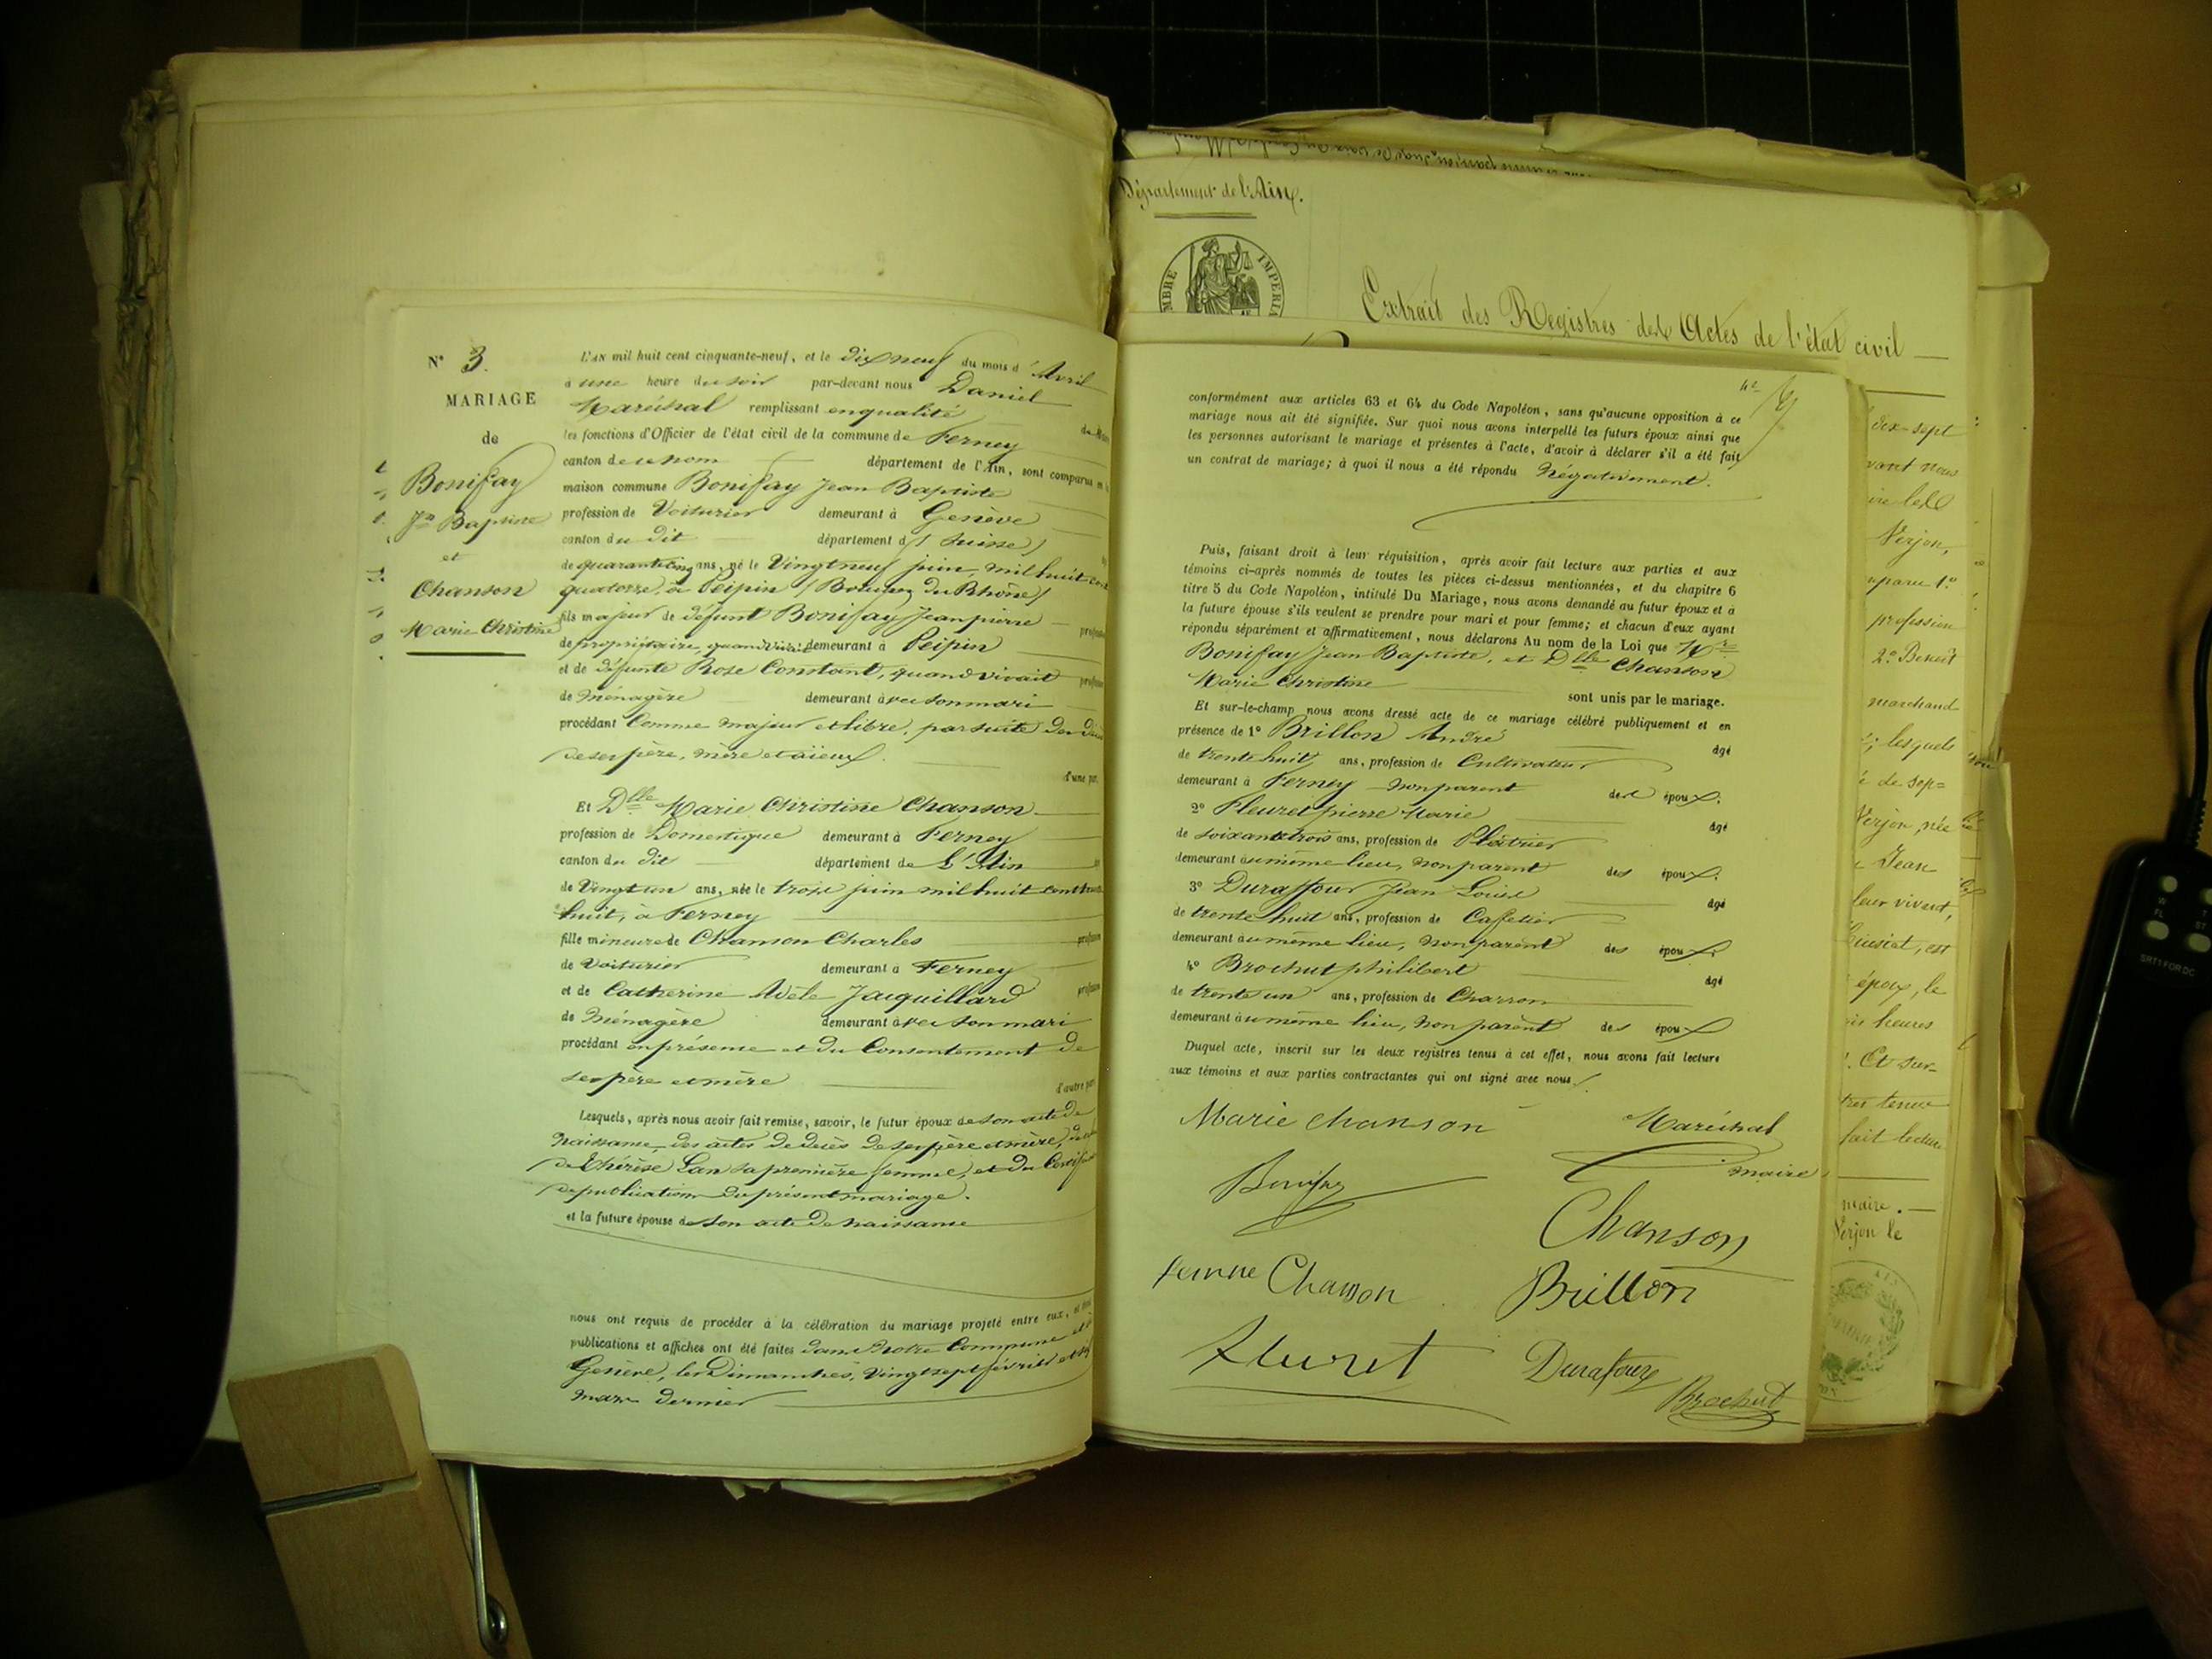 N° 3.
MARIAGE
de
Bonifay
Jn Baptiste
et
Chanson
Marie Christine
L'AN mil huit cent cinquante-neuf, et le dix neuf du mois d'Avril
à une heure du soir par-devant nous Daniel
Maréchal remplissant en qualité de
les fonctions d'Officier de l'état civil de la commune de Ferney
canton de ce nom département de l'Ain, sont comparus en
maison commune Bonifay Jean Baptiste
profession de Voiturier demeurant à Genève
canton du dit département d (Suisse)
de quarante cinq ans, né le Vingt neuf juin mil huit cent
quatorze, à Peipin (Bouches du Rhône)
fils majeur de défunt Bonifay Jean pierre
de propriétaire, quand vivait demeurant à Peipin
et de défunte Rose Constant, quand vivait
de Ménagère demeurant avec son mari
procédant Comme majeur et libre, par suite des décès
de ses père, mère et aïeux.
d'une part
Et Dlle Marie Christine Chanson
profession de Domestique demeurant à Ferney
canton du dit département de L'Ain
de Vingt un ans, née le trois juin mil huit cent trente
huit, à Ferney
fille mineure de Chanson Charles profession
de Voiturier demeurant à Ferney
et de Catherine Adèle Jacquillard profession
de Ménagère demeurant avec son mari
procédant en présence et du Consentement de
ses père et mère
d'autre part
Lesquels, après nous avoir fait remise, savoir, le futur époux de son acte de
naissance, des actes de décès de ses père et mère,
de Thérèse Lan sa première femme, et du Certificat
de publication du présent mariage.
et la future épouse de son acte de naissance
nous ont requis de procéder à la célébration du mariage projeté entre eux,
publications et affiches ont été faites dans notre Commune et à
Genève, les Dimanches, Vingt sept février et
mars dernier
Département de l'Ain.
TIMBRE IMPERIAL
Extrait des Registres des Actes de l'état civil
conformément aux articles 63 et 64 du Code Napoléon, sans qu'aucune opposition à ce
mariage nous ait été signifiée. Sur quoi nous avons interpellé les futurs époux ainsi que
les personnes autorisant le mariage et présentes à l'acte, d'avoir à déclarer s'il a été fait
un contrat de mariage; à quoi il nous a été répondu Négativement.
Puis, faisant droit à leur réquisition, après avoir fait lecture aux parties et aux
témoins ci-après nommés de toutes les pièces ci-dessus mentionnées, et du chapitre 6
titre 5 du Code Napoléon, intitulé Du Mariage, nous avons demandé au futur époux et à
la future épouse s'ils veulent se prendre pour mari et pour femme; et chacun d'eux ayant
répondu séparément et affirmativement, nous déclarons Au nom de la Loi que Mr
Bonifay Jean Baptiste, et Dlle Chanson
Marie Christine sont unis par le mariage.
Et sur-le-champ nous avons dressé acte de ce mariage célébré publiquement et en
présence de 1° Brillon André âgé
de trente huit ans, profession de Cultivateur
demeurant à Ferney non parent des époux.
2° Fleuret pierre Marie âgé
de soixante trois ans, profession de Plâtrier
demeurant au même lieu, non parent des époux.
3° Duraffour Jean Louis âgé
de trente huit ans, profession de Cafetier
demeurant au même lieu, non parent des époux.
4° Brochut philibert âgé
de trente un ans, profession de Charron
demeurant au même lieu, non parent des époux
Duquel acte, inscrit sur les deux registres tenus à cet effet, nous avons fait lecture
aux témoins et aux parties contractantes qui ont signé avec nous.
Marie chanson Maréchal
maire
Bonifay
Chanson
femme Chanson Brillon
Fleuret Durafour
Brochut
dix-sept
vant nous
Verjon,
profession
2° Benoît
marchand
lesquels
é de sep=
Verjon, née
Jean
leur vivant,
époux, le
heures
. Et sur-
tres tenus
fait lecture
maire.
Verjon le
W
FL
ST
SRT1 FOR DC